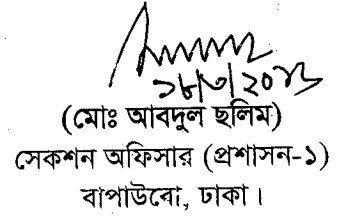 ১৮/৩/২০১৩
(মোঃ আবদুল ছলিম)
সেকশন অফিসার (প্রশাসন-১)
বাপাউবো, ঢাকা।